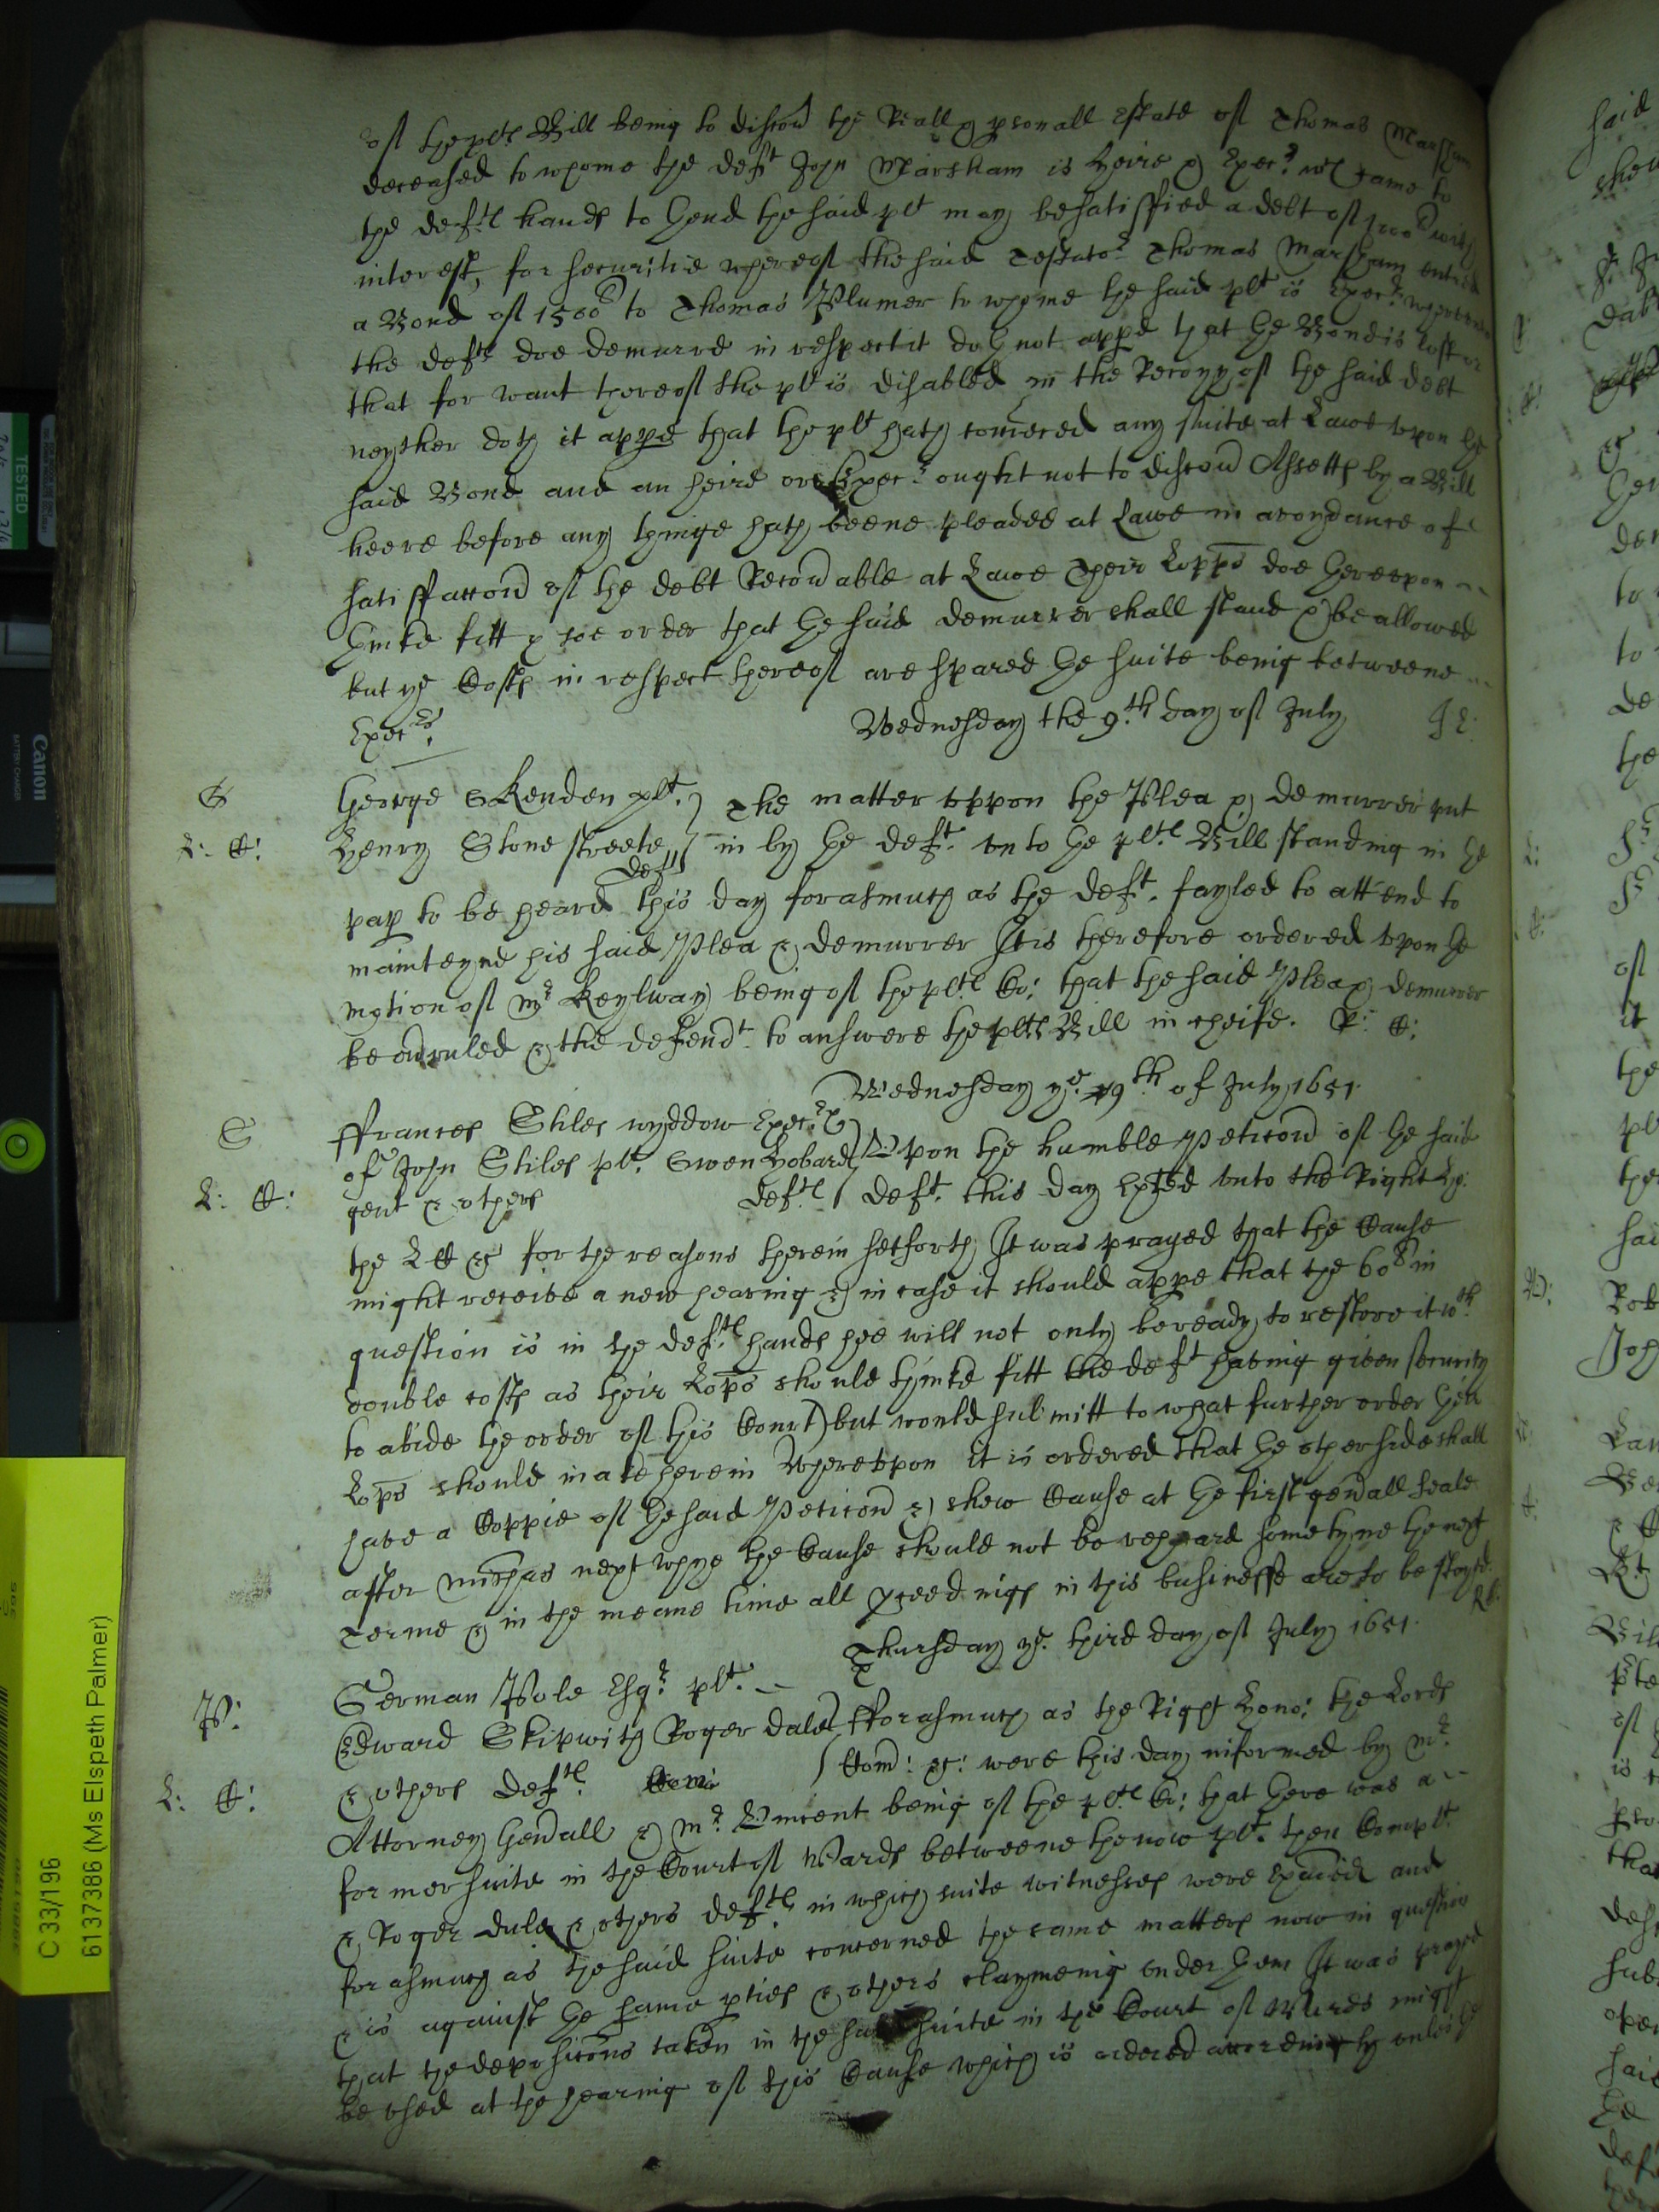 of the plts Bill being to discou the Reall & psonall Estate of Thomas Marsham
deceased to whome the deft John Marsham is heire & Execr wch came to
the defts hands to thend the said plt may be satisffied a debt of with
interest, for securitie whereof the said Testator Thomas Marsham entred
a Bond of 1500 to Thomas Plumer to whome the said plt is Execr whereunto
the defts doe demurre in respect it doth not appe that the Bond is lost or
that for want thereof the plt is disabled in the Recouy of the said debt
neyther doth it appe that the plt hath comenced any suite at Lawe vpon the
said Bond and an heire or Execr ought not to discou Assetts by a Bill
heere before any thinge hath beene pleaded at Lawe in avoydance of
satisffaccon of the debt Recouable at Lawe Their Lopps doe therevpon
thinke fitt & soe order that the said demurrer shall stand & be allowed
but ye Costs in respect thereof are spared the suite being betweene
Execrs.
Wednesday the 9th day of July
S
George Skenden plt. The matter vppon the Plea & demurrer put
L: C:
Henry Stonestreete in by the deft. vnto the plts Bill standing in the
deft
pap to be heard this day forasmuch as the deft. fayled to attend to
mainteyne his said Plea & demurrer It is therefore ordered vpon the
motion of Mr Keylway being of the plts Co: that the said Plea & demurrer
be ouruled & the defendt to answere the plts Bill in cheife. R: C:
Wednesday ye 9th of July 1651.
S
ffrances Stiles wyddow Execr
of John Stiles plt. Owen Hobard Vpon the humble Peticon of the said
L: C:
gent & others defts deft. this day Exhibd vnto the Right ho:
the L C & for the reasons therein setforth It was prayed that the Cause
might receive a new hearing & in case it should appe that the 60 in
question is in the defts hands hee will not only be ready to restore it wth
double costs as their Lopps should thinke fitt the deft having given security
to abide the order of this Court) but would submitt to what further order their
Lopps should make herein Wherevpon it is ordered that the other side shall
have a Coppie of the said Peticon & shew Cause at the first genall Seale
after michas next whye the Cause should not be reheard some tyme the next
Terme & in the meane time all pceedings in this businesse are to be stayed.
Thursday ye third day of July 1651.
P:
German Pole Esqr plt.
Edward Skipwith Roger dale fforasmuch as the Right hono: the Lords
L: C:
& others defts. Com: &c: were this day informed by Mr
Attorney Genall & Mr Vincent being of the plts Co: that there was a
former suite in the Court of Wards betweene the now plt. then Complt
& Roger dale & others defts in which suite witnesses were Exaied and
forasmuch as the said suite concerned the same matters now in question
& is against the same pties & others claymeing vnder them It was prayed
that the deposicons taken in the said suite in the Court of Wards might
be vsed at the hearing of this Cause which is ordered accordingly vnles the
TESTED
Canon
BATTERY CHARGER
C 33/196
6137386 (Ms Elspeth Palmer)